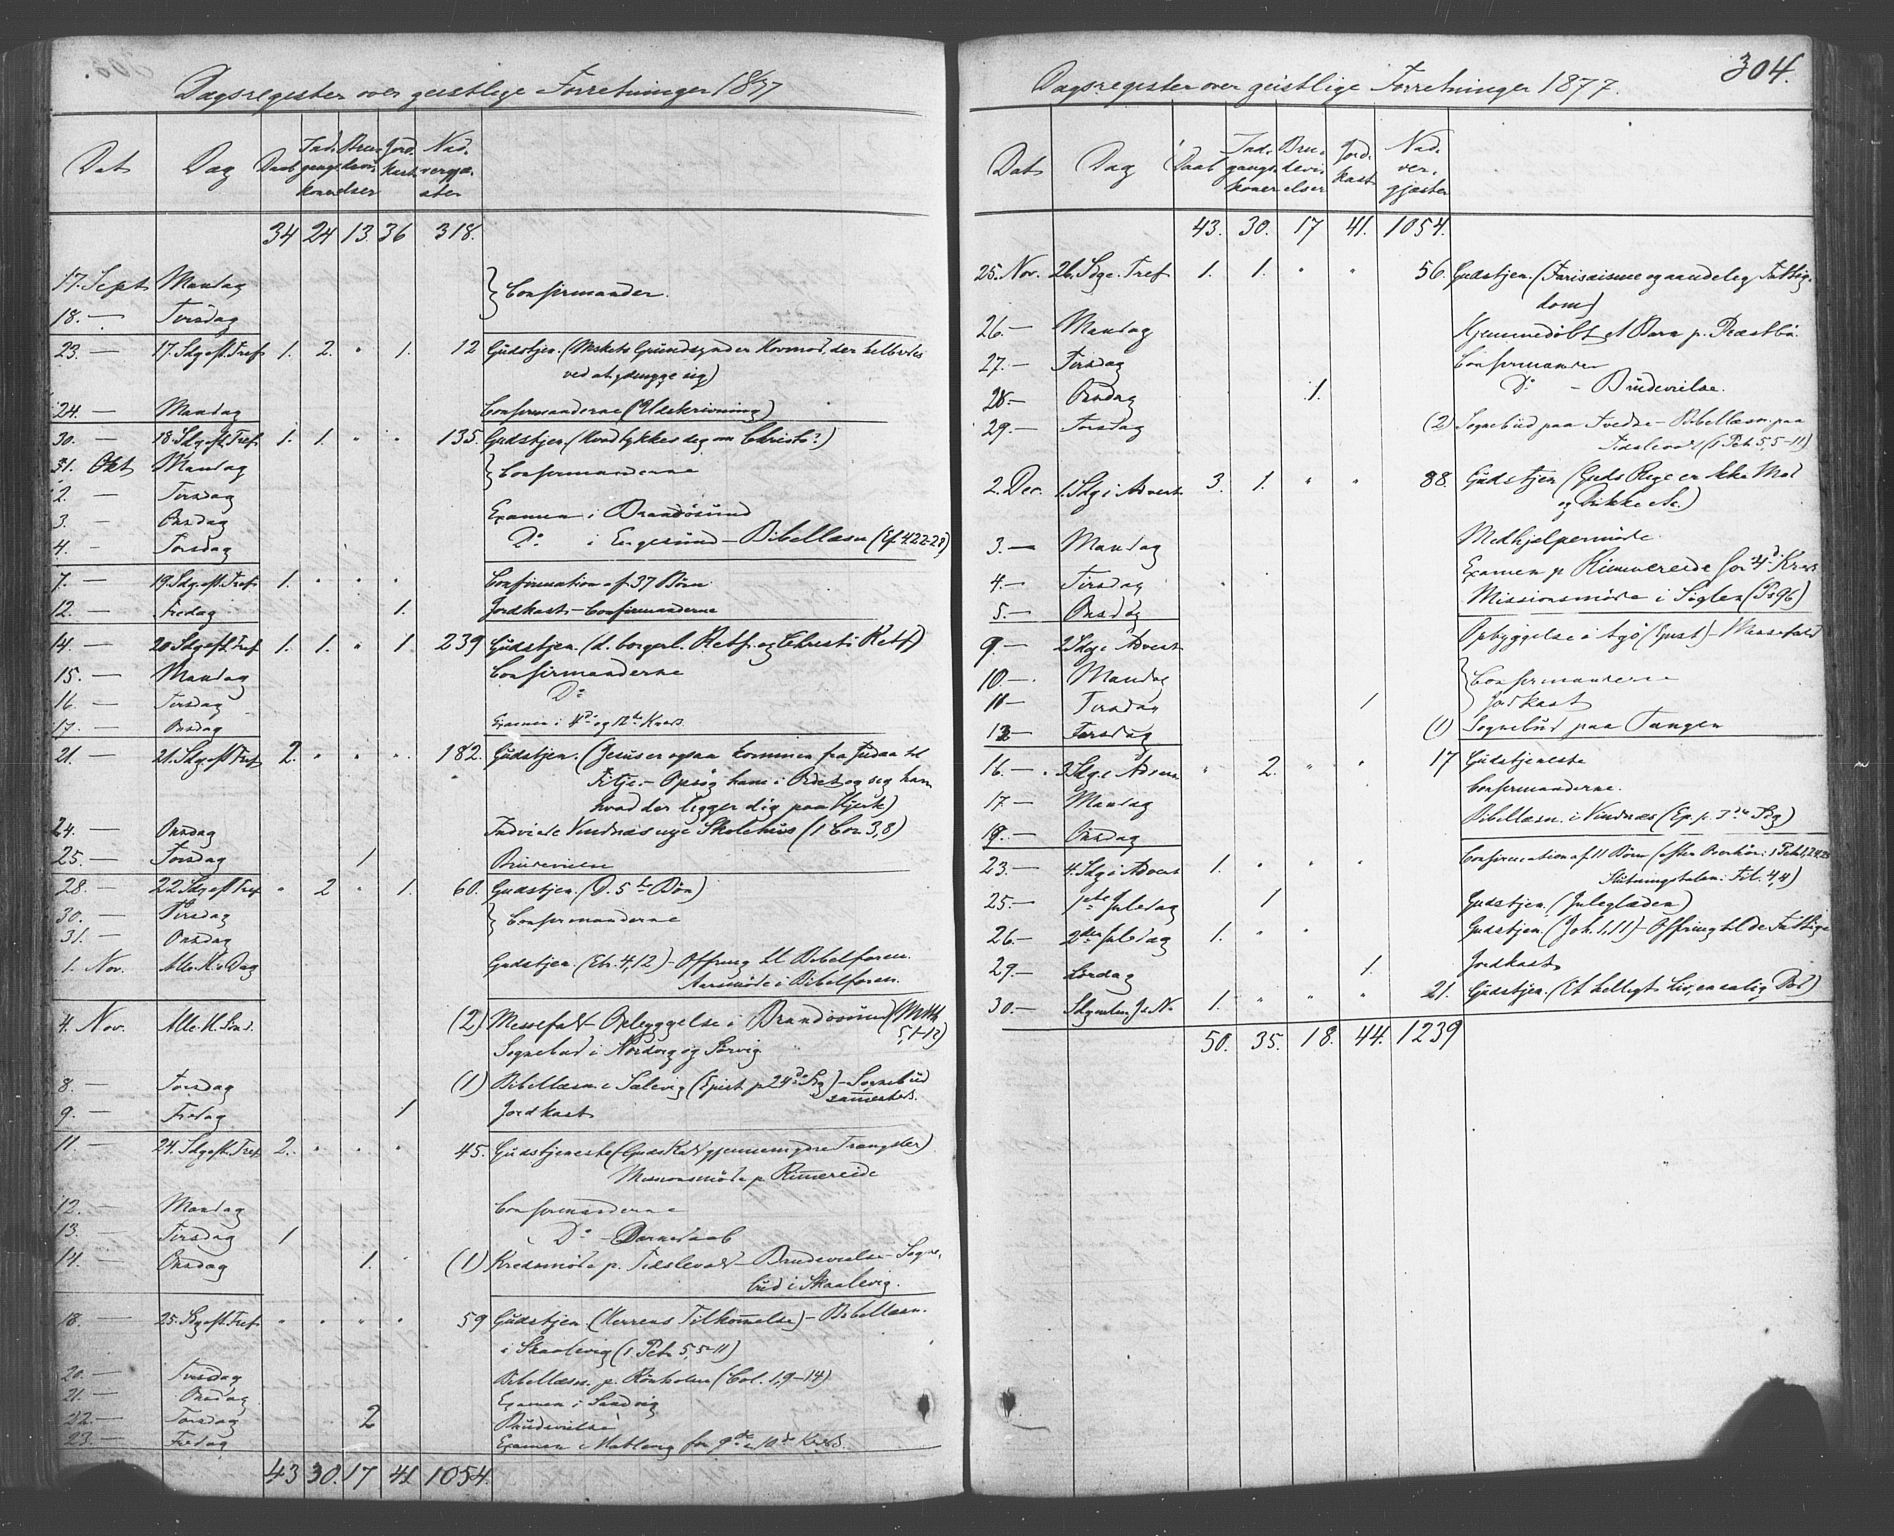 Dagsregister over geistlige Forretninger 1877
Dat Dag Daab Ind.gangs.koner Bru.devi.elser Jord.kast. Nad.vergjæ.ster
34 24 13. 36 318.
17. Sept Mandag } Confirmander.
18. — Tirsdag
23. — 17. Sdg eft. Tref. 1. 2. " 1. 12 Gudstjen. (Mskets Grundsynd er Hovmod, der helbredes
ved at ydmyge sig)
24. — Mandag Confirmanderne (Udskrivning)
30. — 18. Sdg eft. Tref. 1. 1. " " 135. Gudstjen (Hvad tykkes deg om Christo?)
31. Okt Mandag } Confirmanderne
2. — Tirsdag
3. — Onsdag Examen i Brandøsund
4. — Torsdag Do i Engesund — Bibellæsn (Ef. 4.22-28)
7. — 19. Sdg. eft. Tref. 1. " " " Confirmation af 37 Børn
12. — Fredag 1. Jordkast — Confirmanderne
14. — 20 Sdg eft. Tref. 1. 1. " 1 239 Gudstjen. (d. borgerl. Retf. og Christi Retf)
15. — Mandag Confirmanderne
16. — Tirsdag Do
17. — Onsdag Examen i 4de og 12te Kreds.
21. — 21. Sdg eft Tref. 2. " " " 182. Gudstjen. (Jesus er ogsaa kommen fra Judæa til
Fitje. — Opsøg ham i Ordet og seg ham
hvad der ligger dig paa Hjerte)
24. — Onsdag Indviede Vindnæs nye Skolehus (1 Cor. 3,8)
25. — Torsdag 1 Brudevielse
28. — 22 Sdg eft Tref. " 2 " 1. 60. Gudstjen. (D. 5te Bøn)
30. — Tirsdag } Confirmanderne
31. — Onsdag
1. Nov. Alle H. Dag Gudstjen. (Eb. 4,12) — Offring til Bibelforen.
Aarsmøde i Bibelforen.
4. Nov. Alle H. Sønd. (2) Messefald — Opbyggelse i Brandøsund (Mtth
5,1-12)
Sognebud i Nordvig og Sørvig
8. — Torsdag (1) Bibellæsn. i Sælevig (Epist. p 24de Sdg) — Sognebud
sammesteds.
9. — Fredag 1 Jordkast
11. — 24. Sdg eft. Tref. 2. " " " 45. Gudstjeneste (Guds Raad gjennem ydre Trængsler)
Missionsmøde p. Rimereide
12. — Mandag Confirmanderne
13. — Tirsdag 1 Do — Barnedaab
14. — Onsdag 1. (1) Kredsmøde p. Tidslevold — Brudevielse — Sogne,
bud i Skaalevig.
18. — 25. Sdg eft. Tref. " " " " 59 Gudstjen. (Herrens Tilkommelse) — Bibellæsn.
i Skaalevig (1. Petr. 5,5-11)
20. — Tirsdag Bibellæsn. p. Rønholm (Col. 1,9-14)
21. — Onsdag Examen i Sandvig
22. — Torsdag 2 Brudevielse
23. — Fredag Examen i for 9de og 10de Kreds.
43 30. 17 41 1054.
304.
Dagsregister over geistlige Forretninger 1877.
Dat Dag Daab Ind.gangs.koner Bru.devi.elser Jord.kast Nad.ver.gjæster
43. 30. 17 41. 1054.
25. Nov. 26. Sdg e. Tref 1. 1. " " 56. Gudstjen. (Farisæisme og aandeleg Fattig,
dom)
26. — Mandag Hjemmedøbt et Barn p. Præstbø
27. — Tirsdag Confirmander
28. — Onsdag 1. Do — Brudevielse.
29. — Torsdag (2) Sognebud paa — Bibellæsn. paa
Tidslevold (1 Petr. 5,5-11)
2. Dec. 1. Sdg i Advent 3. 1. " " 88. Gudstjen (Guds Rige er ikke Mad
og Drikke etc.)
3. — Mandag Medhjælpermøde.
4. — Tirsdag Examen p Rimmereide for 4de Kreds
5. — Onsdag Missionsmøde i Siglen (Ps 96)
9. — 2 Sdg i Advent Opbyggelse i Agø — Messefald
10. — Mandag } Confirmanderne
11. — Tirsdag 1 Jordkast
13. — Torsdag (1) Sognebud paa Tangen
16. — 3 Sdg i Advent " 2. " " 17 Gudstjeneste
17. — Mandag Confirmanderne.
19. — Onsdag Bibellæsn. i Vindnæs (Ep. p. 3die Sdg)
23. — 4. Sdg i Advent 1. " " " Confirmation af 11 Børn (efter Overhør: 1 Petr.
Slutningstalen. Fil. 4,4)
25. — 1ste Juledag 1 Gudstjen. (Juleglæden)
26. — 2den Juledag 1. " " Gudstjen. (Joh. 1,11) — Offring til de Fattige
29. — Lørdag 1. Jordkast
30. — 1. " " " 21. Gudstjen. (Et helligt Liv, en salig Død)
50. 35. 18. 44. 1239